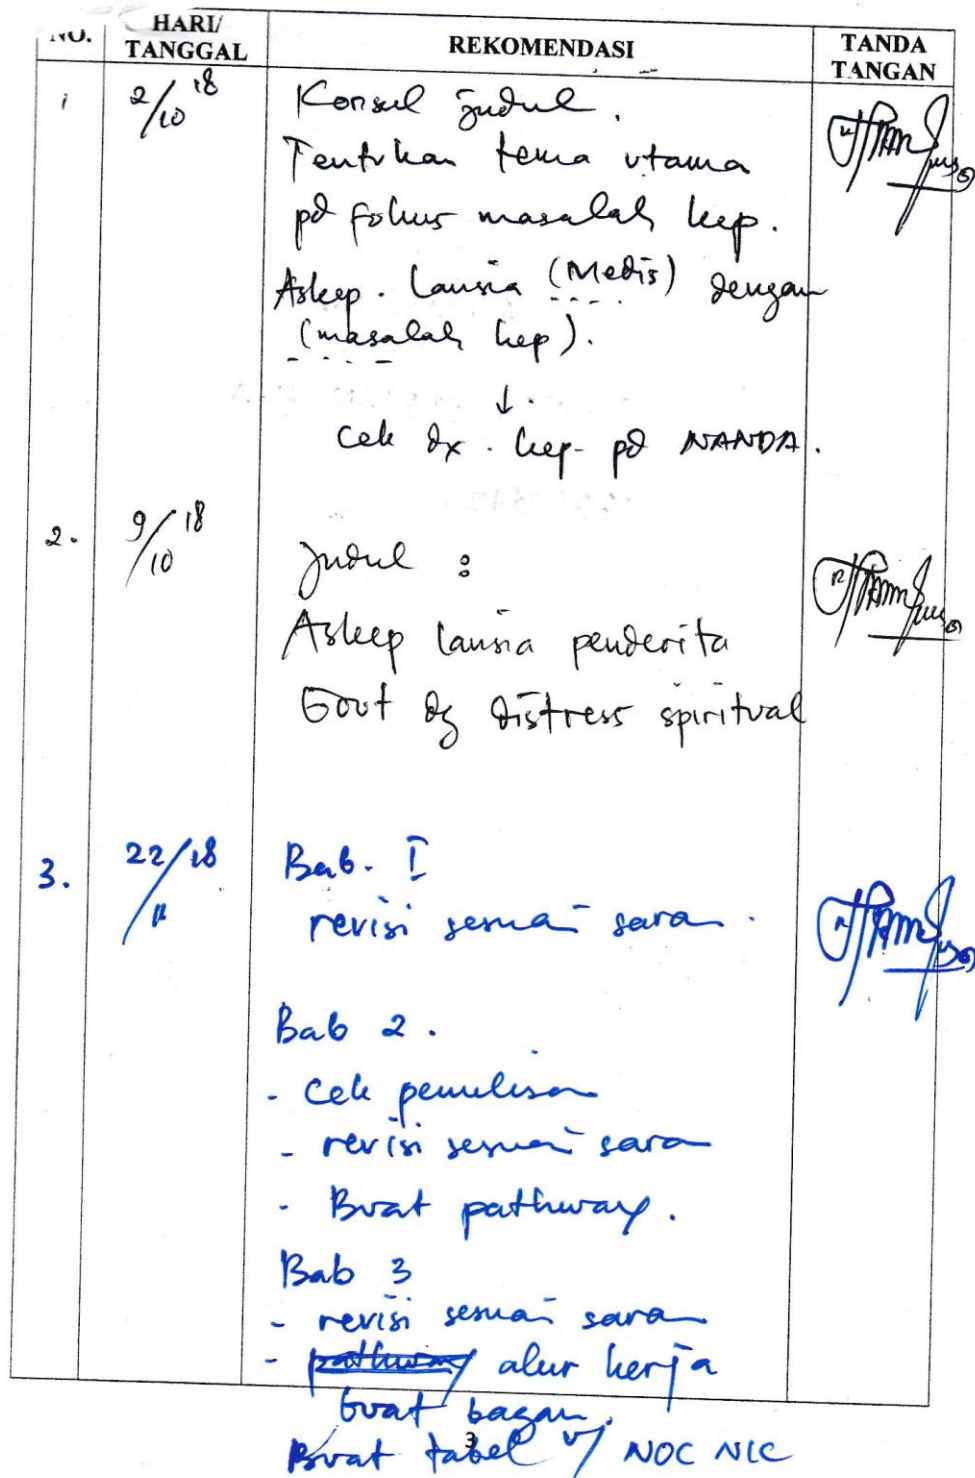 NO. HARI/ TANGGAL REKOMENDASI TANDA TANGAN
1 2/10 18 Konsul judul.
Tentukan tema utama
pd fokus masalah kep.
Askep. Lansia (Medis) dengan
(masalah kep).
↓
Cek dx. kep. pd NANDA.
2. 9/10 18
Judul :
Askep lansia penderita
Gout dg distress spiritual
3. 22/11 18 Bab. I
revisi sesuai saran.
Bab 2.
- Cek penulisan
- revisi sesuai saran
- Buat pathway.
Bab 3
- revisi sesuai saran
- pathway alur kerja
buat bagan.
3
Buat tabel u/ NOC NIC